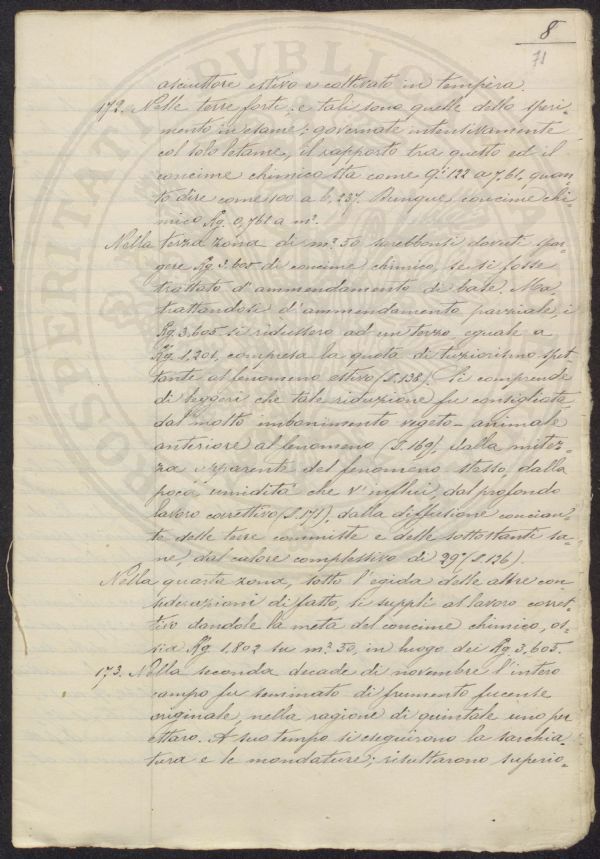 8
71
asciuttore estivo e coltivato in tempèra.
172. Nelle terre forti: e tali sono quelle dello speri-
mento in esame: governate intensivamente
col solo letame, il rapporto tra questo ed il
concime chimico sta come Qᶦ 122 a 7.61, quan-
to dire come 100 a 6.237. Dunque concime chi-
mico Kg. 0,762 a m².
Nella terza zona di m² 50 sarebbonsi dovute spar-
gere Kg. 3.605 di concime chimico, se si fosse
trattato d'ammendamento di base. Ma
trattandosi d'ammendamento parziale, i
Kg. 3.605 si ridussero ad un terzo, eguale a
Kg. 1.201, compresa la quota di tuziorismo spet-
tante al fenomeno estivo (§.138). Si comprende
di leggeri che tale riduzione fu consigliata
dal molto imbonimento vegeto-animale
anteriore al fenomeno (§.169), dalla mitez-
za apparente del fenomeno stesso, dalla
poca umidità che v'influì, dal profondo
lavoro correttivo (§.171), dalla diffusione concian-
te delle terre commiste e delle sottostanti sa-
ne, dal calore complessivo di 29° (§.136).
Nella quarta zona, sotto l'egida delle altre con-
siderazioni di fatto, si supplì al lavoro corret-
tivo dandole la metà del concime chimico, os-
sia Kg. 1.802 su m² 50, in luogo dei Kg. 3.605.
173. Nella seconda decade di novembre l'intero
campo fu seminato di frumento fucense
originale, nella ragione di quintale uno per
ettaro. A suo tempo si eseguirono la sarchia-
tura e le mondature; risultarono superio-